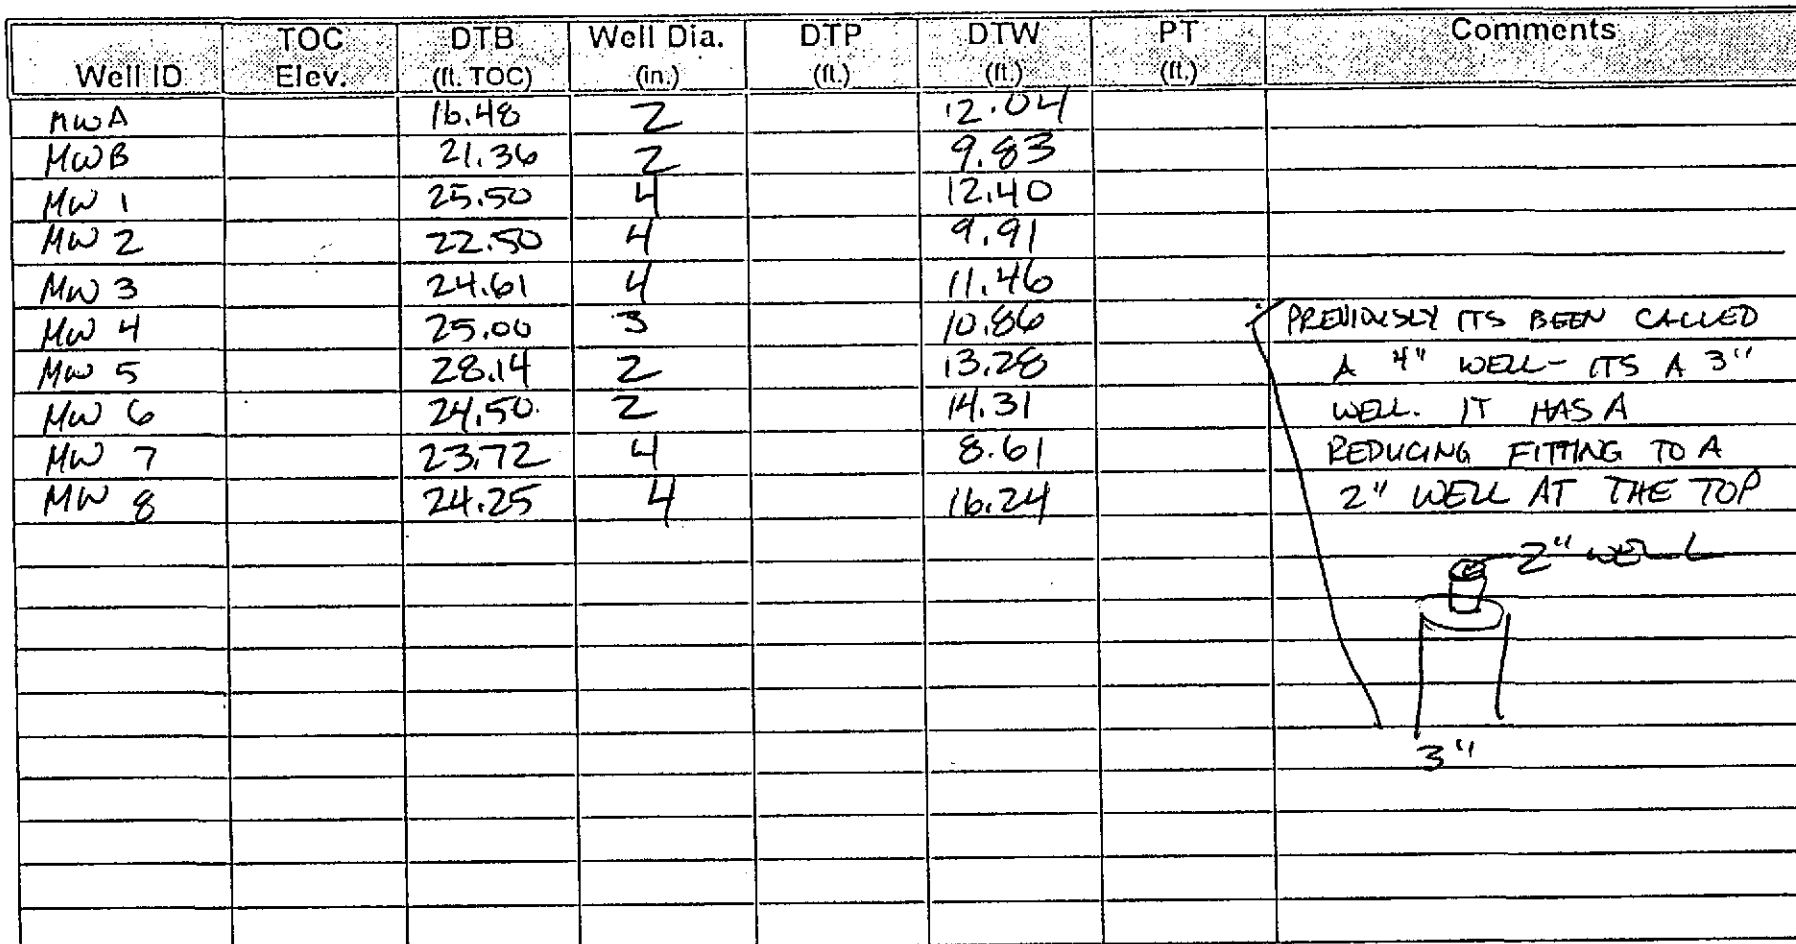 Well ID TOC Elev. DTB (ft. TOC) Well Dia. (in.) DTP (ft.) DTW (ft.) PT (ft.) Comments
MWA 16.48 2 12.04
MWB 21.36 2 9.83
MW 1 25.50 4 12.40
MW 2 22.50 4 9.91
MW 3 24.61 4 11.46
MW 4 25.00 3 10.86 PREVIOUSLY ITS BEEN CALLED
MW 5 28.14 2 13.28 A 4" WELL- ITS A 3"
MW 6 24.50 2 14.31 WELL. IT HAS A
MW 7 23.72 4 8.61 REDUCING FITTING TO A
MW 8 24.25 4 16.24 2" WELL AT THE TOP
2" WELL
3"